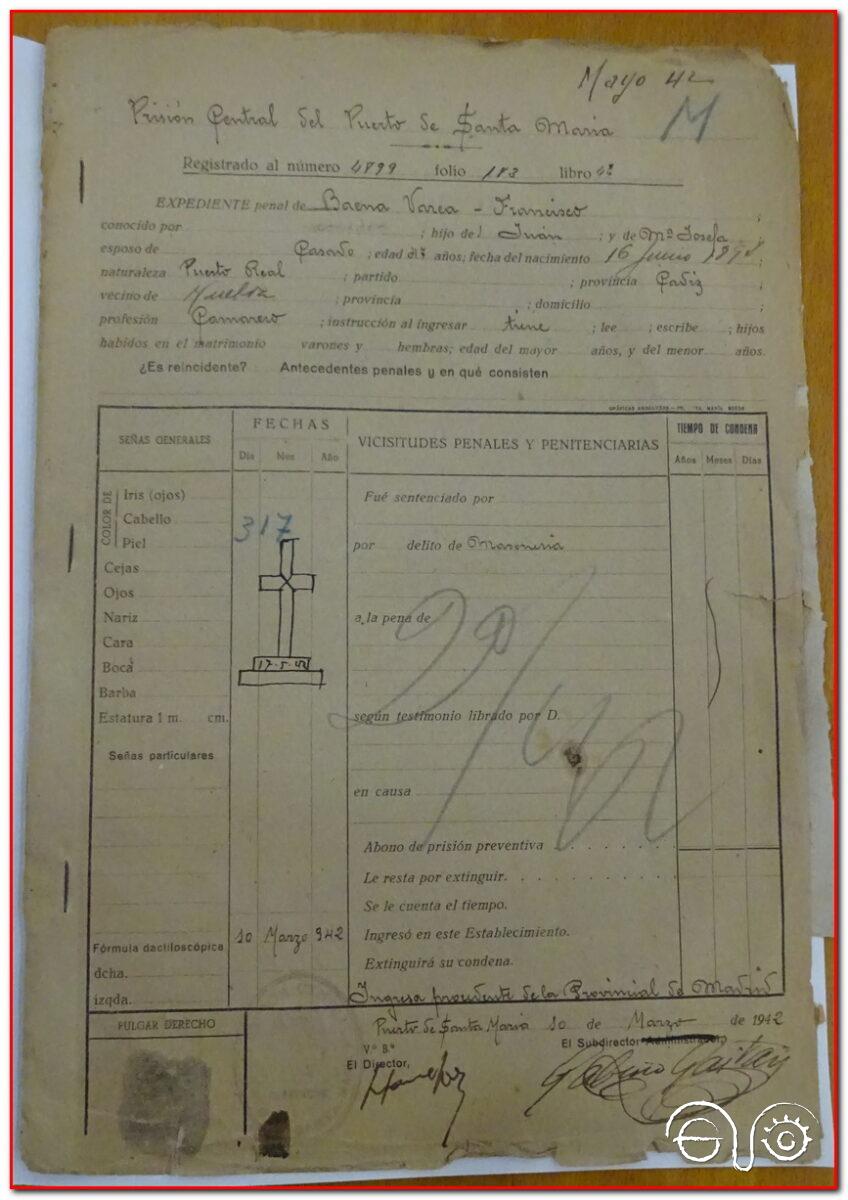 Mayo 42
Prisión Central del Puerto de Santa María M
Registrado al número 4899 folio 183 libro 4º
EXPEDIENTE penal de Baena Varea - Francisco ;
conocido por ; hijo de Juán ; y de Mª Josefa ;
esposo de Casado ; edad años; fecha del nacimiento 16 Junio ;
naturaleza Puerto Real ; partido ; provincia Cadiz ;
vecino de Huelva ; provincia ; domicilio ;
profesión Camarero ; instrucción al ingresar tiene ; lee ; escribe ; hijos
habidos en el matrimonio varones y hembras; edad del mayor años, y del menor años.
¿Es reincidente? Antecedentes penales y en qué consisten
SEÑAS GENERALES
FECHAS
Día Mes Año
VICISITUDES PENALES Y PENITENCIARIAS
TIEMPO DE CONDENA
Años Meses Días
COLOR DE
Iris (ojos)
Cabello
Piel
Cejas
Ojos
Nariz
Cara
Boca
Barba
Estatura 1 m. cm.
Señas particulares
317
17-5-42
Fué sentenciado por
por delito de Masonería
a la pena de
según testimonio librado por D.
en causa
Abono de prisión preventiva
Le resta por extinguir.
Se le cuenta el tiempo.
Fórmula dactiloscópica 10 Marzo 942 Ingresó en este Establecimiento.
dcha. Extinguirá su condena.
izqda. Ingresa procedente de la Provincial de Madrid
PULGAR DERECHO
Puerto de Santa María 10 de Marzo de 1942
V.º B.º
El Director,
El Subdirector Administrador